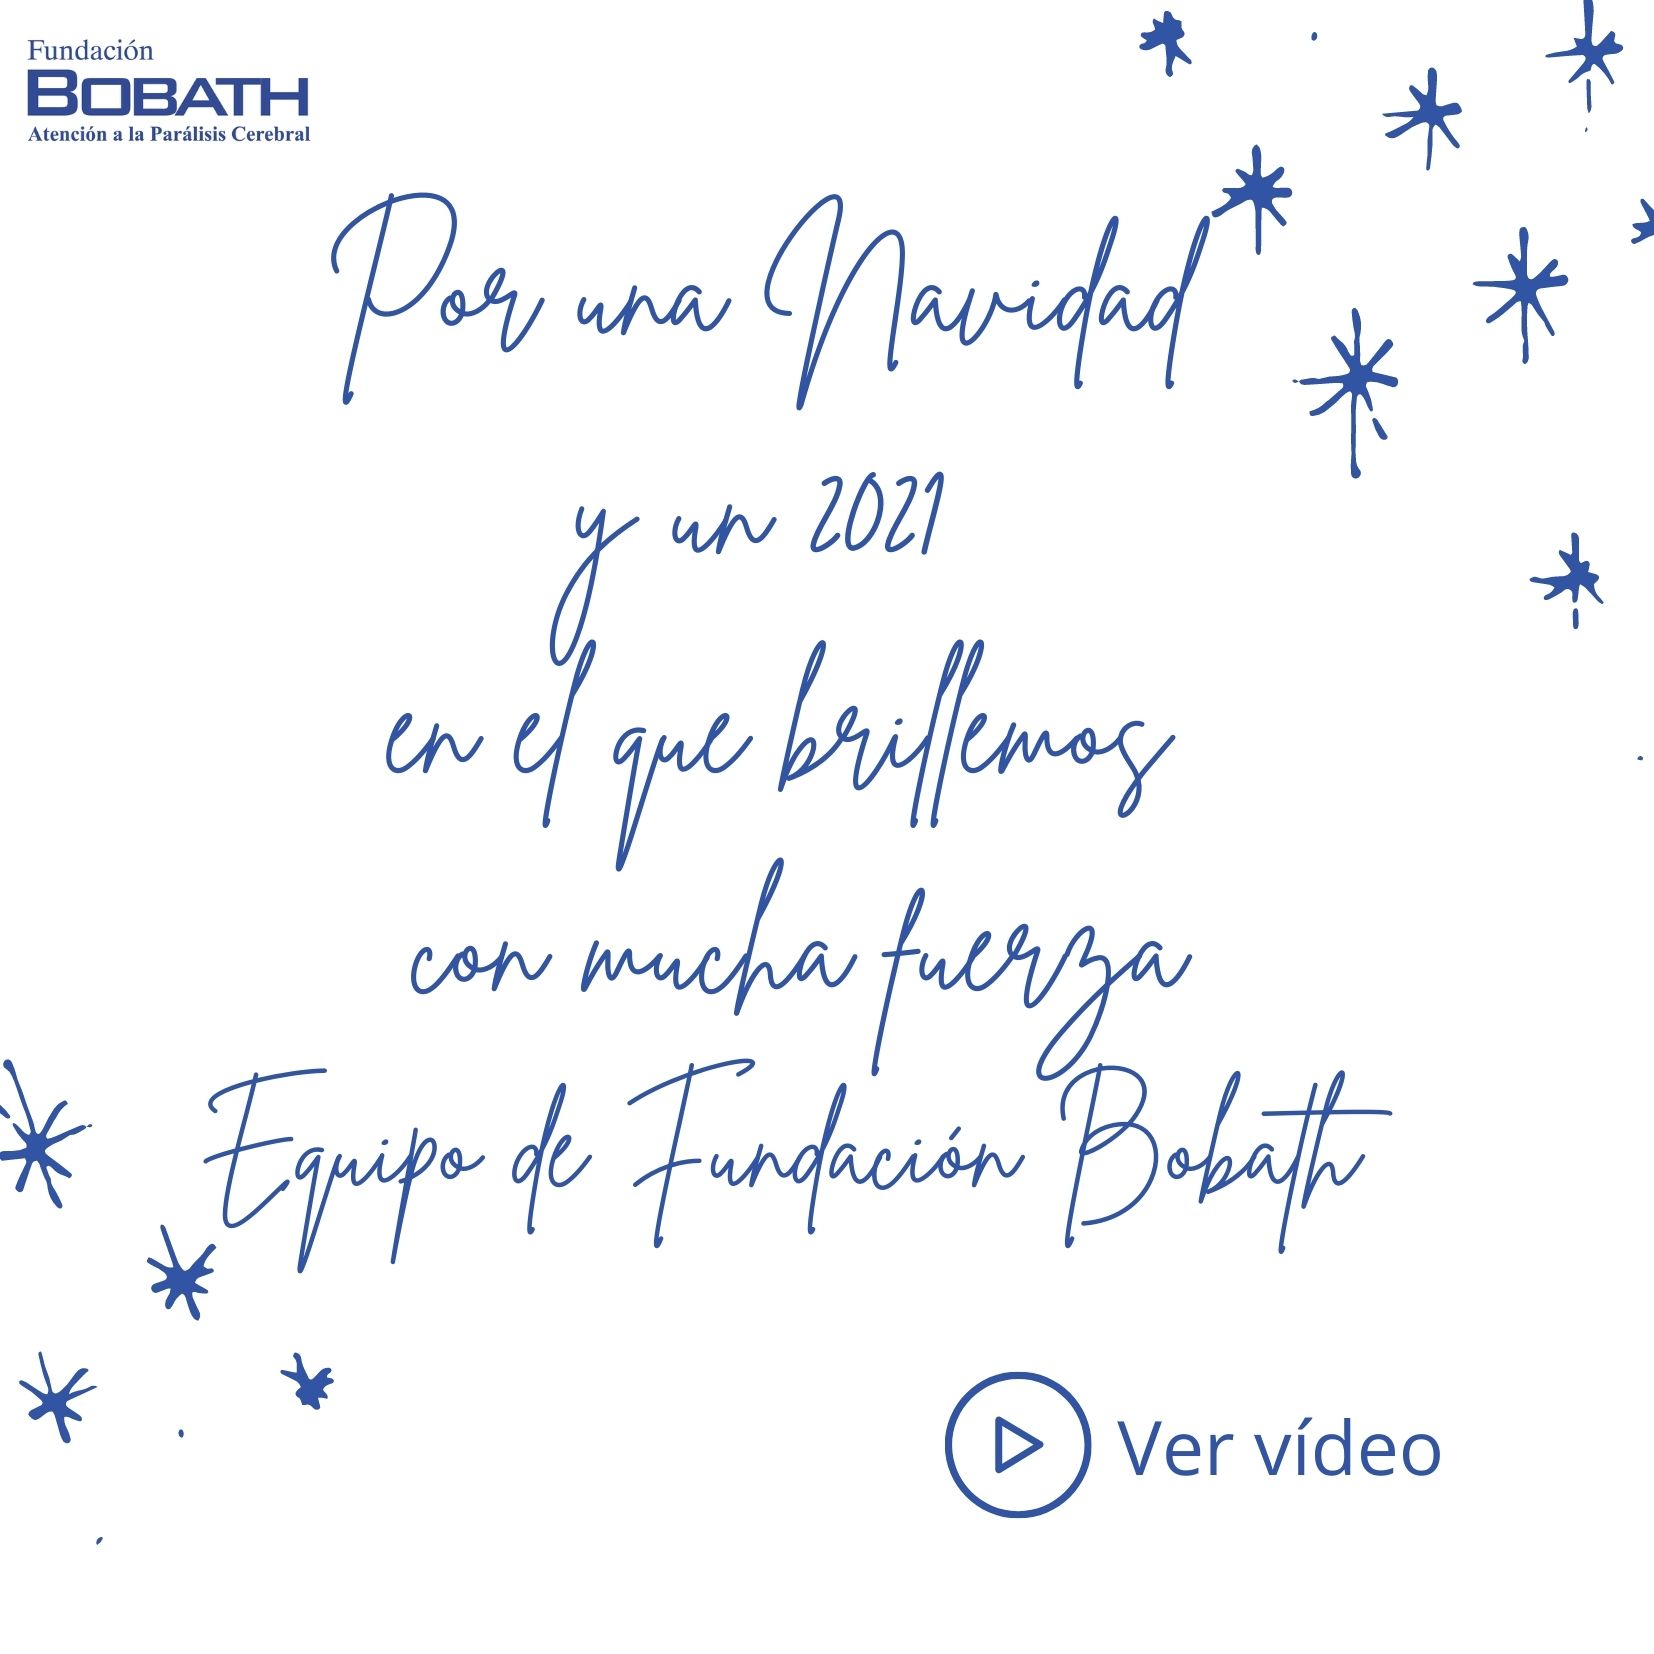 Fundación
BOBATH
Atención a la Parálisis Cerebral
Por una Navidad
y un 2021
en el que brillemos
con mucha fuerza
Equipo de Fundación Bobath
Ver vídeo